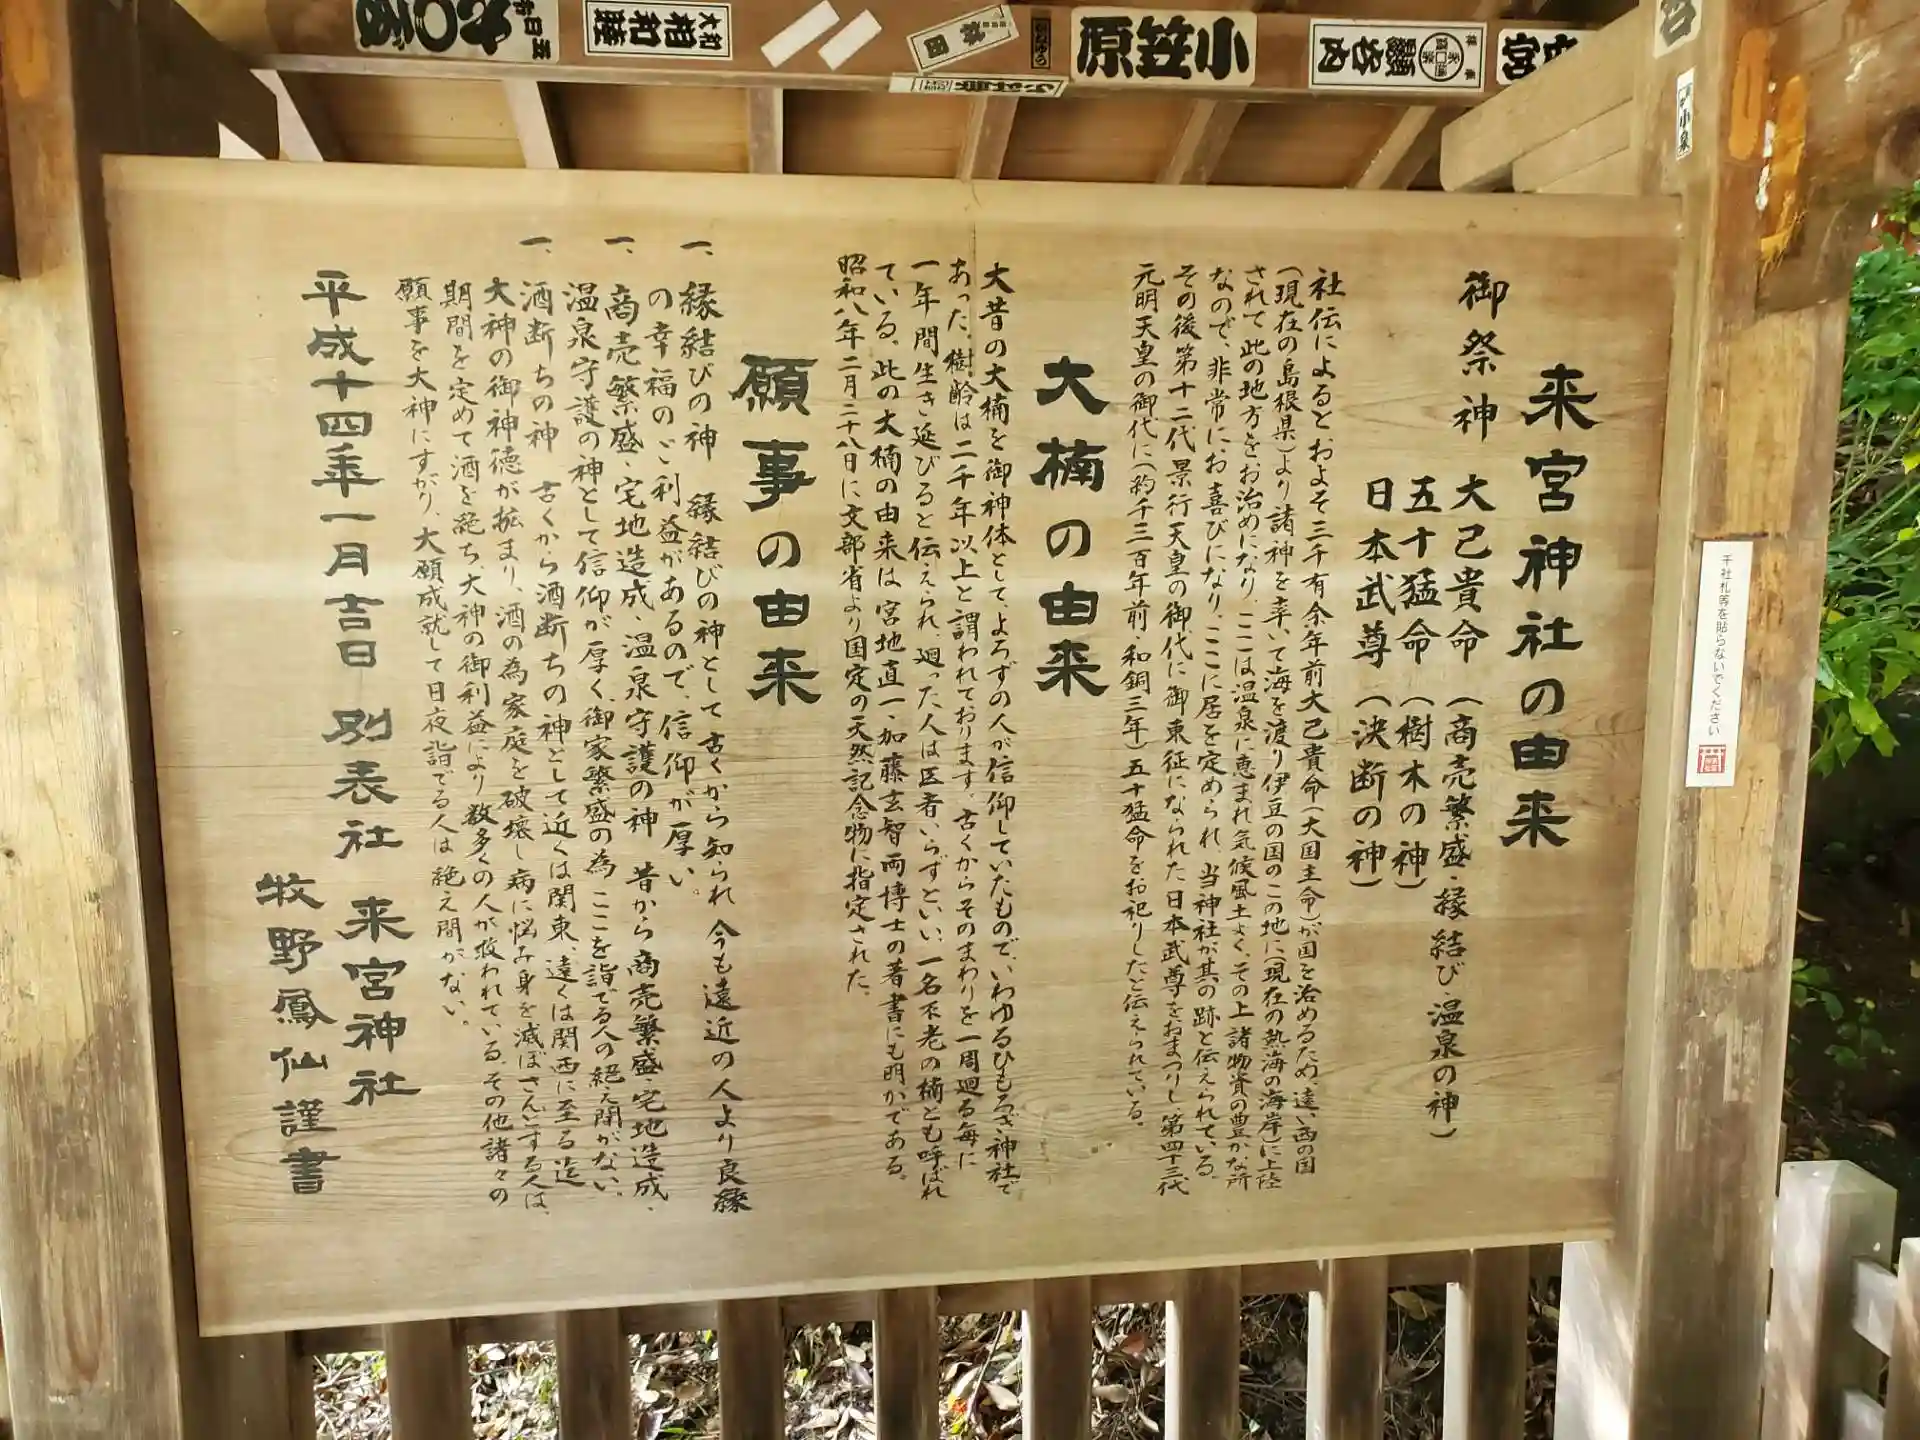 来宮神社の由来
御祭神 大己貴命（商売繁盛・縁結び・温泉の神）
五十猛命（樹木の神）
日本武尊（決断の神）
社伝によるとおよそ三千有余年前大己貴命（大国主命）が国を治めるため、遠い西の国
（現在の島根県）より諸神を率いて海を渡り伊豆の国のこの地に（現在の熱海の海岸）に上陸
されて此の地方をお治めになり、ここは温泉に恵まれ気候風土よく、その上諸物資の豊かな所
なので、非常にお喜びになり、ここに居を定められ、当神社が其の跡と伝えられている。
その後第十二代景行天皇の御代に御東征になられた日本武尊をおまつりし、第四十三代
元明天皇の御代に（約千三百年前・和銅三年）五十猛命をお祀りしたと伝えられている。
大楠の由来
大昔の大楠を御神体として、よろずの人が信仰していたもので、いわゆるひもろぎ神社で
あった。樹齢は二千年以上と謂われております。古くからそのまわりを一周廻る毎に
一年間生き延びると伝えられ、廻った人は医者いらずといい、一名不老の楠とも呼ばれ
ている。此の大楠の由来は宮地直一、加藤玄智両博士の著書にも明かである。
昭和八年二月二十八日に文部省より国定の天然記念物に指定された。
願事の由来
一、縁結びの神 縁結びの神として古くから知られ 今も遠近の人より良縁
の幸福のご利益があるので、信仰が厚い。
一、商売繁盛・宅地造成・温泉守護の神 昔から商売繁盛・宅地造成・
温泉守護の神として信仰が厚く、御家繁盛の為 ここを詣でる人の絶え間がない。
一、酒断ちの神 古くから酒断ちの神として近くは関東、遠くは関西に至る迄
大神の御神徳が拡まり、酒の為家庭を破壊し病に悩み身を滅ぼさんとする人は、
期間を定めて酒を絶ち、大神の御利益により数多くの人が救われている。その他諸々の
願事を大神にすがり、大願成就して日夜詣でる人は絶え間がない。
平成十四年一月吉日 別表社 来宮神社
牧野鳳仙謹書
千社札等を貼らないでください
小笠原
大和 相和睦
小泉